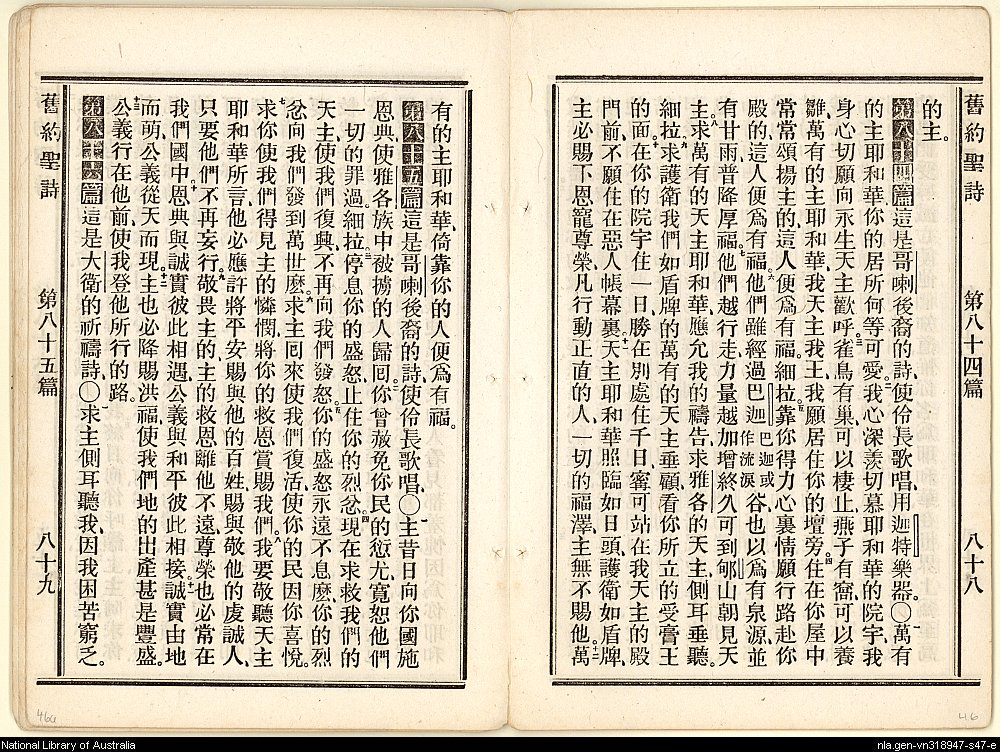 舊約聖詩 第八十四篇 八十八
的主。
第八十四篇 這是哥喇後裔的詩、使伶長歌唱、用迦特樂器。〇一萬有
的主耶和華、你的居所何等可愛。二我心深羨切慕耶和華的院宇、我
身心切願向永生天主歡呼。三雀鳥有巢、可以棲止、燕子有窩、可以養
雛、萬有的主耶和華、我天主我王、我願居住你的壇旁。四住在你屋中
常常頌揚主的、這人便爲有福、細拉。五靠你得力、心裏情願行路赴你
殿的、這人便爲有福。六他們雖經過巴迦巴迦或作流淚谷、也以爲有泉源、並
有甘雨普降厚福。七他們越行走、力量越加增、終久可到郇山朝見天
主。八求萬有的天主耶和華、應允我的禱告、求雅各的天主側耳垂聽、
細拉。九求護衛我們如盾牌的萬有的天主、垂顧看你所立的受膏王
的面。十在你的院宇住一日、勝在別處住千日、寗可站在我天主的殿
門前、不願住在惡人帳幕裏。十一天主耶和華照臨如日頭、護衛如盾牌、
主必賜下恩寵尊榮、凡行動正直的人、一切的福澤、主無不賜他。十二萬
有的主耶和華、倚靠你的人便爲有福。
第八十五篇 這是哥喇後裔的詩、使伶長歌唱。〇一主昔日向你國施
恩典、使雅各族中被擄的人歸回。二你曾赦免你民的愆尤、寬恕他們
一切的罪過、細拉。三停息你的盛怒、止住你的烈忿。四現在求救我們的
天主、使我們復興、不再向我們發怒。五你的盛怒永遠不息麼、你的烈
忿向我們發到萬世麼。六求主回來使我們復活、使你的民因你喜悅。
七求你使我們得見主的憐憫、將你的救恩賞賜我們。八我要敬聽天主
耶和華所言、他必應許將平安賜與他的百姓、賜與敬他的虔誠人、
只要他們不再妄行。九敬畏主的、主的救恩離他不遠、尊榮也必常在
我們國中。十恩典與誠實彼此相遇、公義與和平彼此相接。十一誠實由地
而萌、公義從天而現。十二主也必降賜洪福、使我們地的出產甚是豐盛。
十三公義行在他前、使我登他所行的路。
第八十六篇 這是大衛的祈禱詩。〇一求主側耳聽我、因我困苦窮乏。
舊約聖詩 第八十五篇 八十九
46a
46
National Library of Australia
nla.gen-vn318947-s47-e